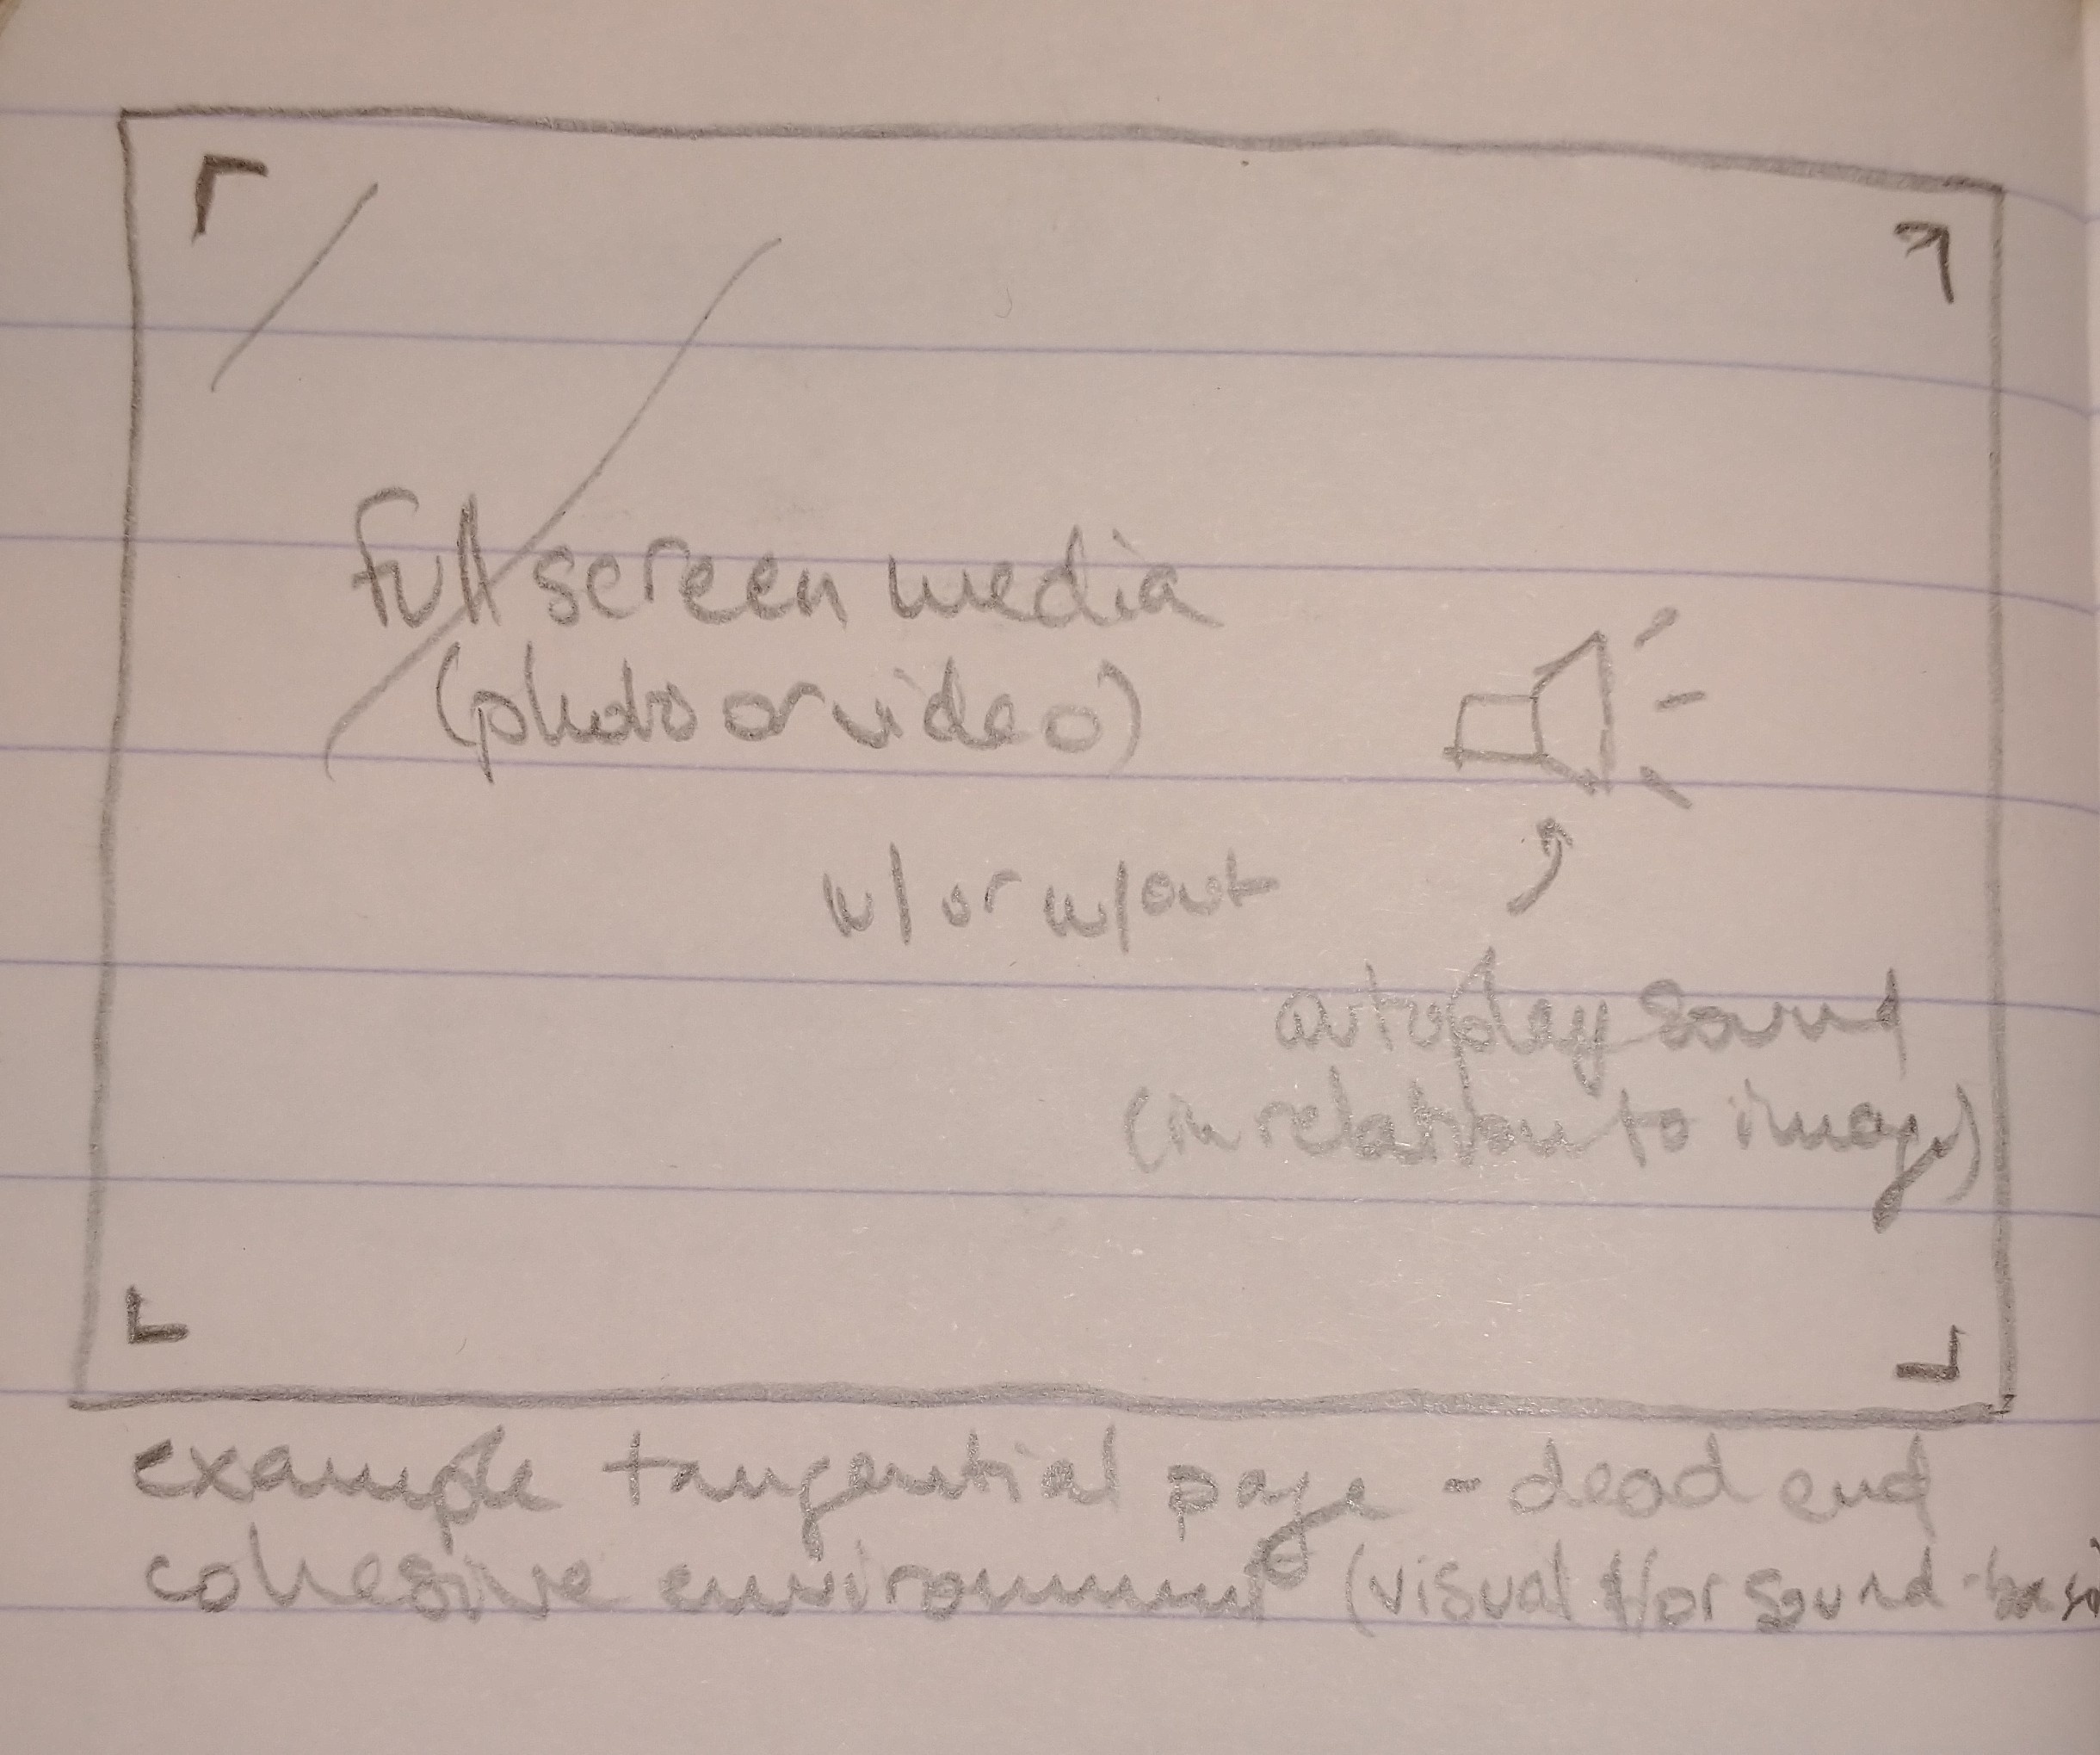 full screen media
(photo or video)
w/ or w/out
autoplay sound
(in relation to image)
example tangential page - dead end
cohesive environment (visual &/or sound-